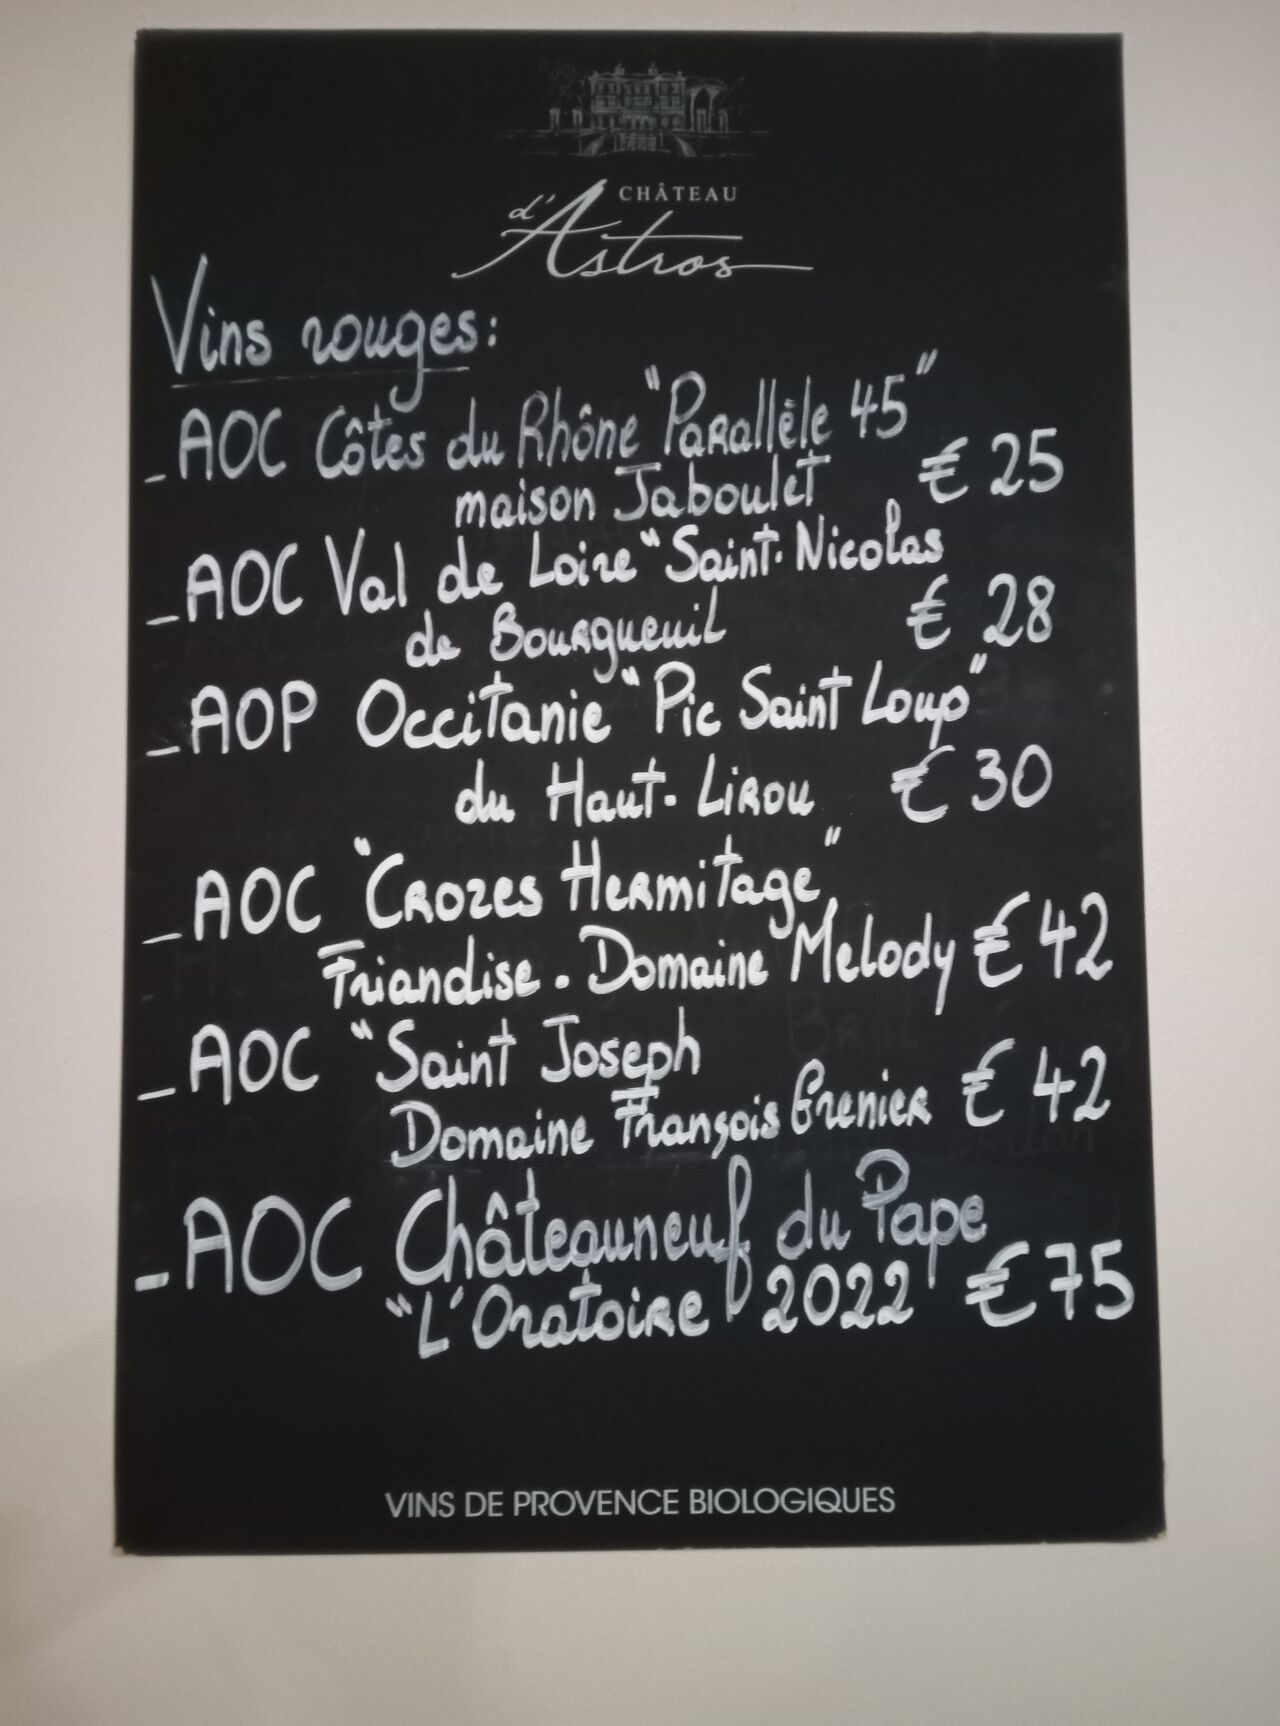 CHÂTEAU
d'Astros
Vins rouges:
- AOC Côtes du Rhône "Parallèle 45"
maison Jaboulet € 25
- AOC Val de Loire "Saint-Nicolas
de Bourgueuil € 28
- AOP Occitanie "Pic Saint Loup"
du Haut-Lirou € 30
- AOC "Crozes Hermitage"
Friandise - Domaine Melody € 42
- AOC "Saint Joseph
Domaine François Grenier € 42
- AOC Châteauneuf du Pape
"L'Oratoire" 2022 € 75
VINS DE PROVENCE BIOLOGIQUES